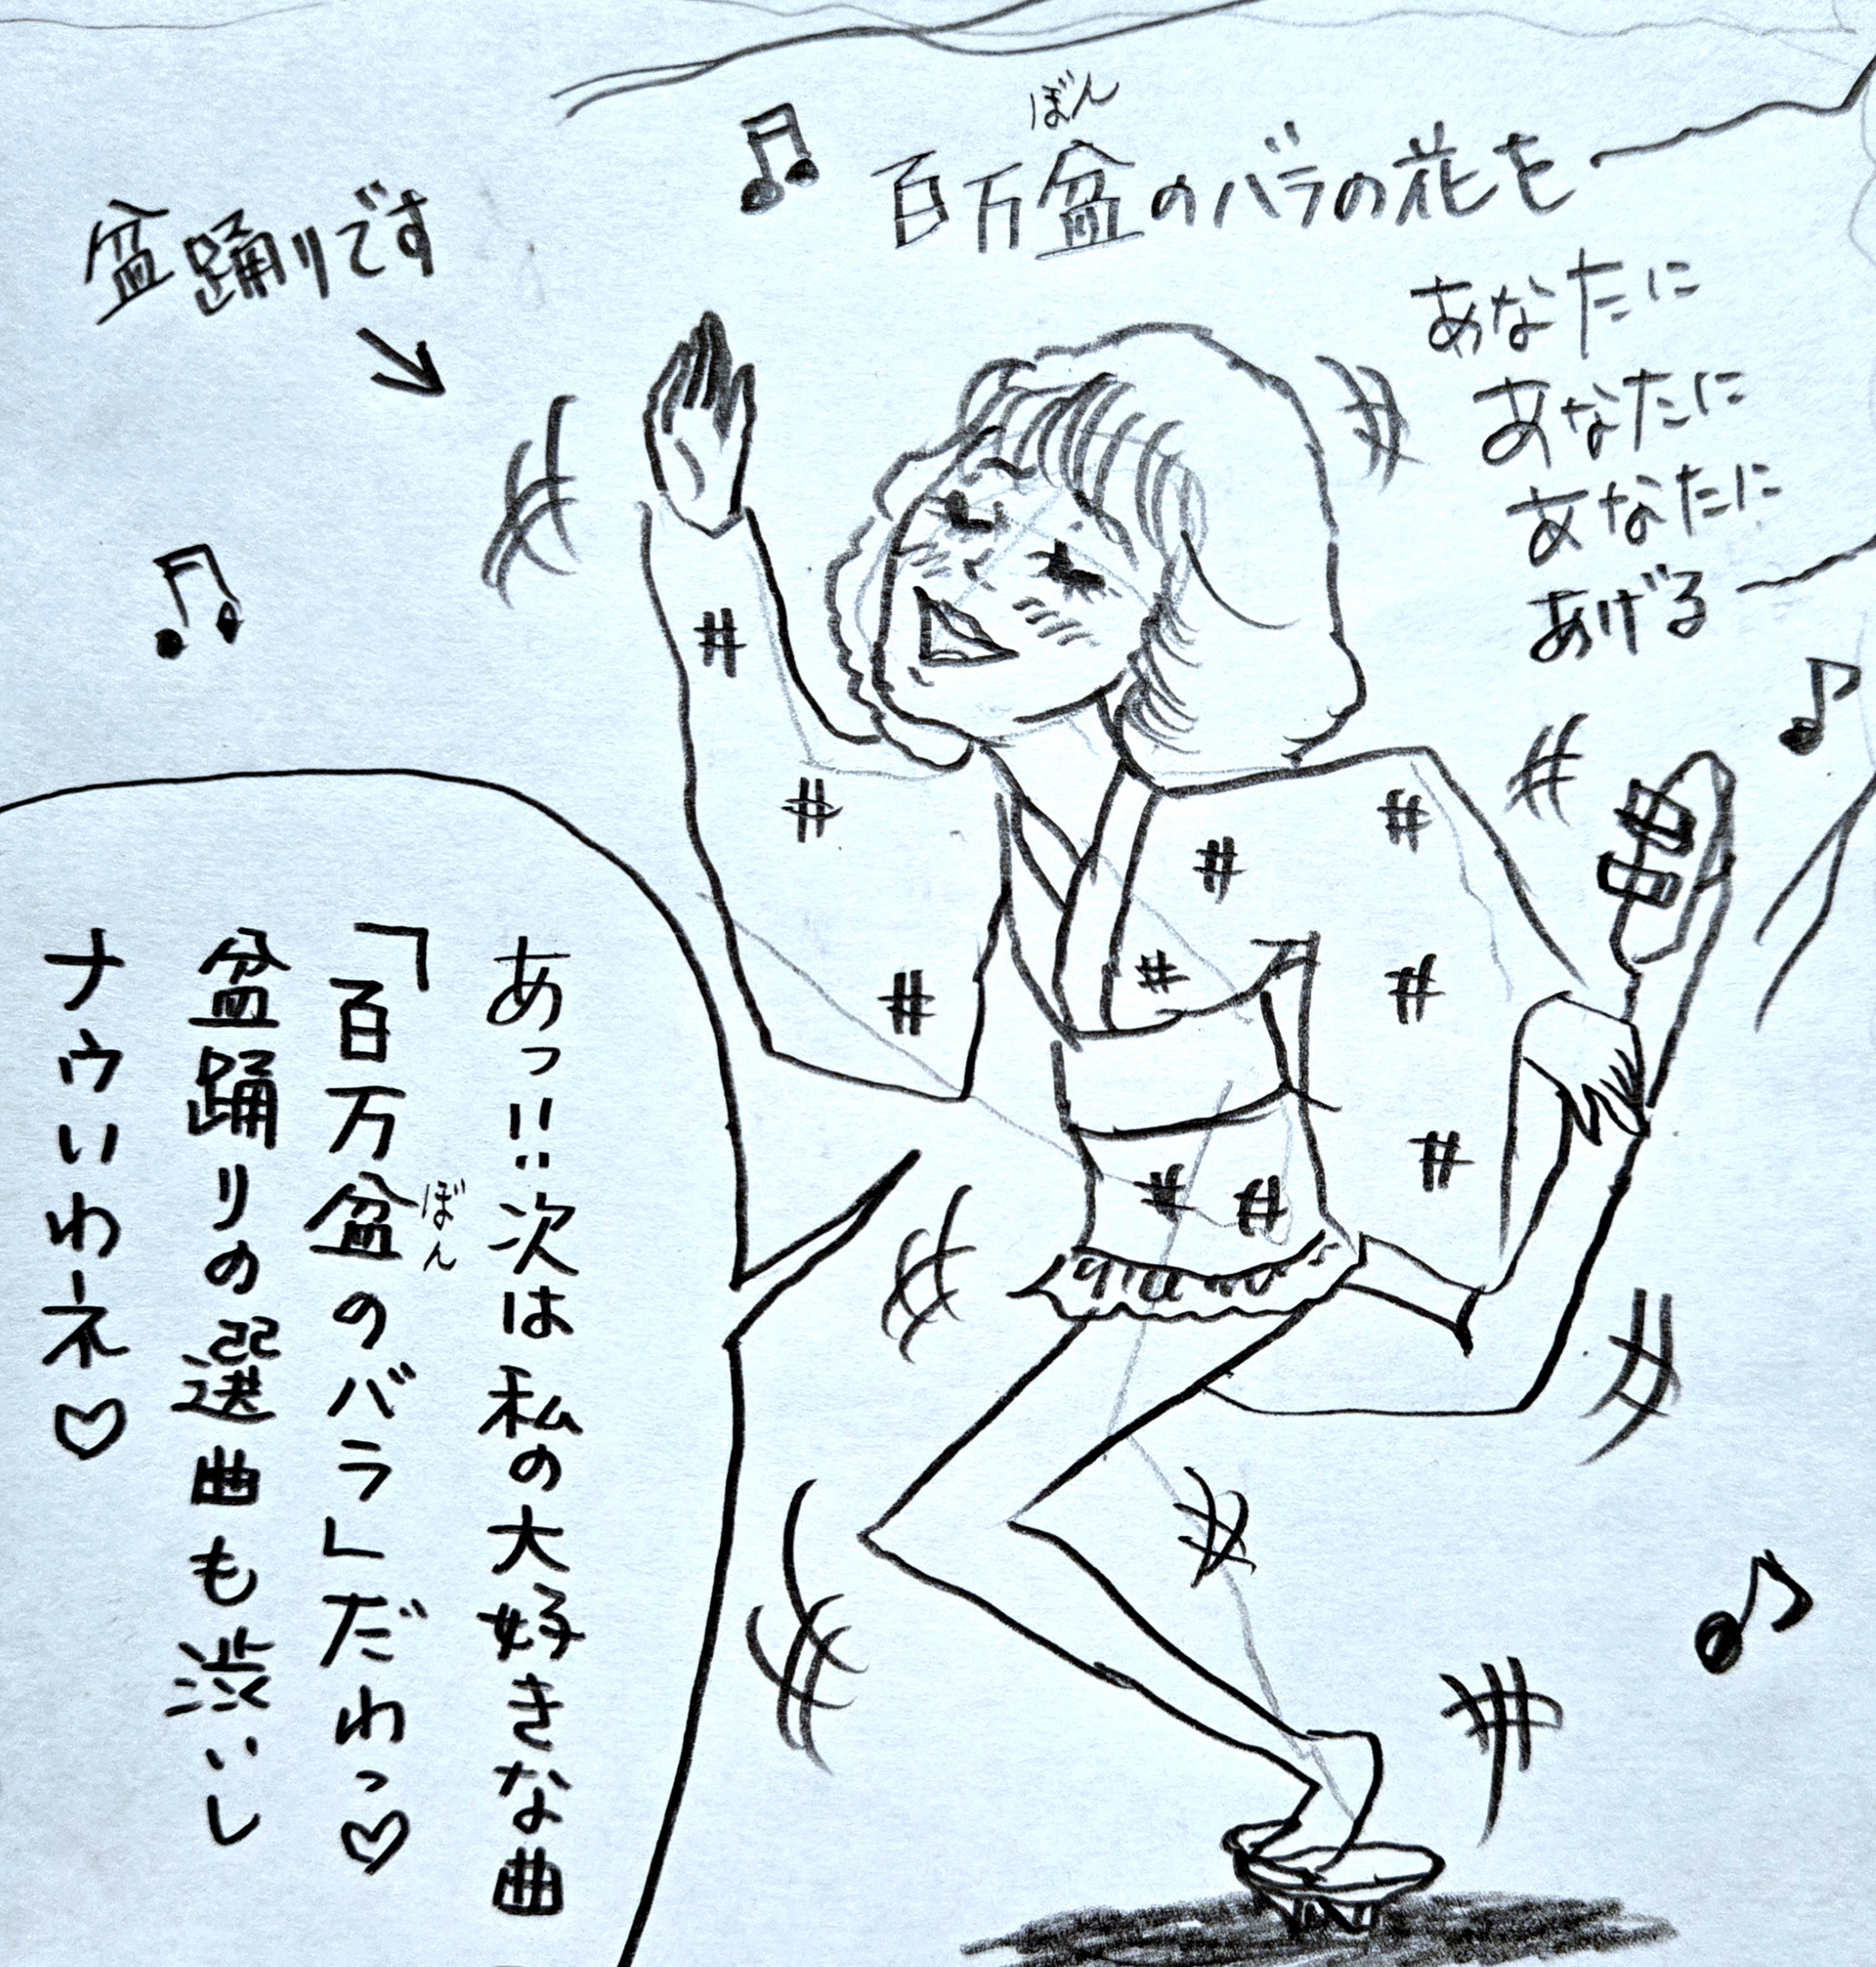 盆踊りです
百万盆のバラの花を
ぼん
あなたに
あなたに
あなたに
あげる
あっ!!次は私の大好きな曲
「百万盆のバラ」だわっ♡
ぼん
盆踊りの選曲も渋いし
ナウいわネ♡